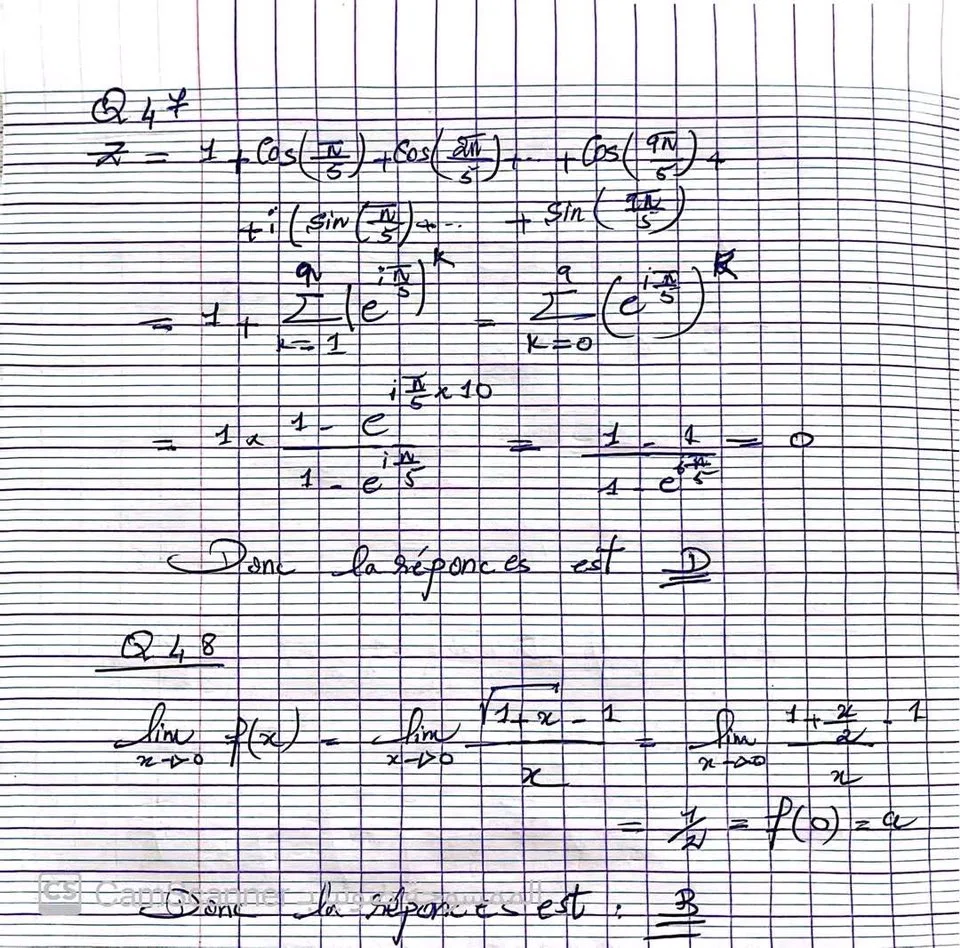 Q 47
Z = 1 + Cos(π/5) + Cos(2π/5) + ... + Cos(9π/5) +
+ i (sin(π/5) + ... + sin(9π/5)
= 1 + Σ_{k=1}^{9} (e^{iπ/5})^k = Σ_{k=0}^{9} (e^{iπ/5})^k
= 1 × (1 - e^{iπ/5 × 10}) / (1 - e^{iπ/5}) = (1 - 1) / (1 - e^{iπ/5}) = 0
Donc la réponces est D
Q 48
lim_{x→0} f(x) = lim_{x→0} (√(1+x) - 1) / x = lim_{x→0} (1 + x/2 - 1) / x
= 1/2 = f(0) = a
CS CamScanner
Donc la réponces est : B